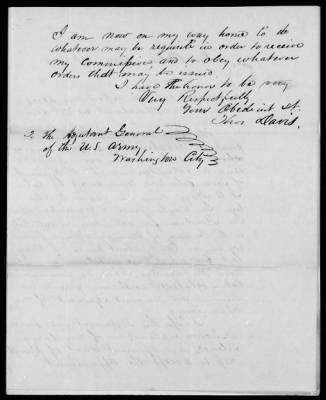 I am now on my way home to do
whatever may be requisite in order to receive
my commission, and to obey whatever
orders that may be issued
I have the honor to be very
Very Respectfully
Your Obedient St.
Thos Davis.
To the Adjutant General
of the U.S. Army
Washington City